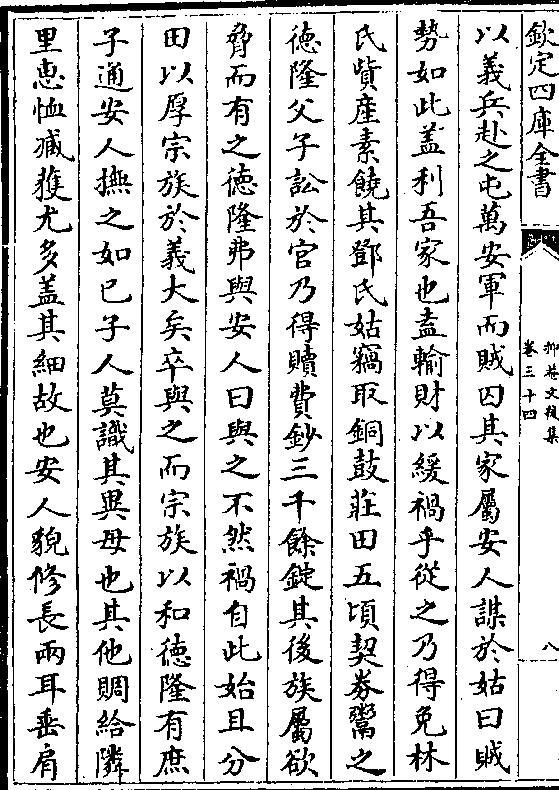 欽定四庫全書
抑菴文後集
卷三十四
八
以義兵赴之屯萬安軍而賊囚其家屬安人謀於姑曰賊
勢如此盖利吾家也盍輸財以緩禍乎從之乃得免林
氏貲産素饒其鄧氏姑竊取銅鼓莊田五頃契劵鬻之
徳隆父子訟於官乃得贖費鈔三千餘錠其後族屬欲
脅而有之徳隆弗與安人曰與之不然禍自此始且分
田以厚宗族於義大矣卒與之而宗族以和徳隆有庶
子通安人撫之如已子人莫識其異母也其他賙給隣
里恵恤臧獲尤多盖其細故也安人貌修長兩耳垂肩